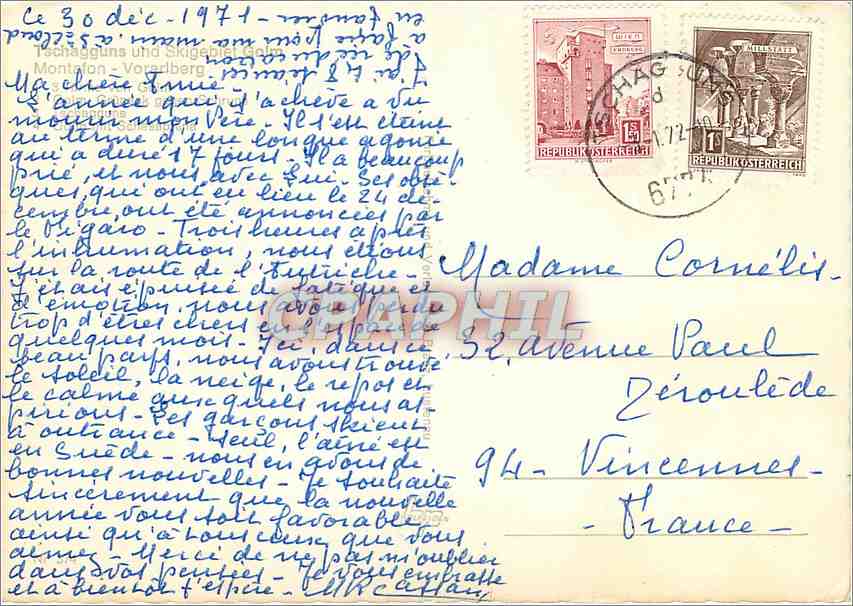 Ce 30 déc. 1971 -
Tschagguns und Skigebiet Golm
Montafon - Vorarlberg
Ma chère Annie -
L'année qui s'achève a vu
mourir mon Père - Il s'est éteint
au terme d'une longue agonie
qui a duré 17 jours - Il a beaucoup
prié, et nous avec Lui - Ses obsè-
ques, qui ont eu lieu le 24 dé-
cembre, ont été annoncées par
le Figaro - Trois heures après
l'inhumation, nous étions
sur la route de l'Autriche -
J'étais épuisée de fatigue et
d'émotion, nous avons perdu
trop d'êtres chers en l'espace de
quelques mois - Ici, dans ce
beau pays, nous avons trouvé
le soleil, la neige, le repos et
le calme auxquels nous as-
pirions - Les garçons skient
à outrance - Seul, l'aîné est
en Suède - nous en avons de
bonnes nouvelles - Je souhaite
sincèrement que la nouvelle
année vous soit favorable,
ainsi qu'à tous ceux que vous
aimez - Merci de ne pas m'oublier
dans vos pensées - Je vous embrasse
et à bientôt j'espère -
Madame Cornélis -
32, avenue Paul
Déroulède
94 - Vincennes -
- France -
WIEN
ERDBERG
1.50
REPUBLIK ÖSTERREICH
MILLSTATT
1S
REPUBLIK ÖSTERREICH
TSCHAGGUNS
d
.1.72-10
677
CPAPHIL